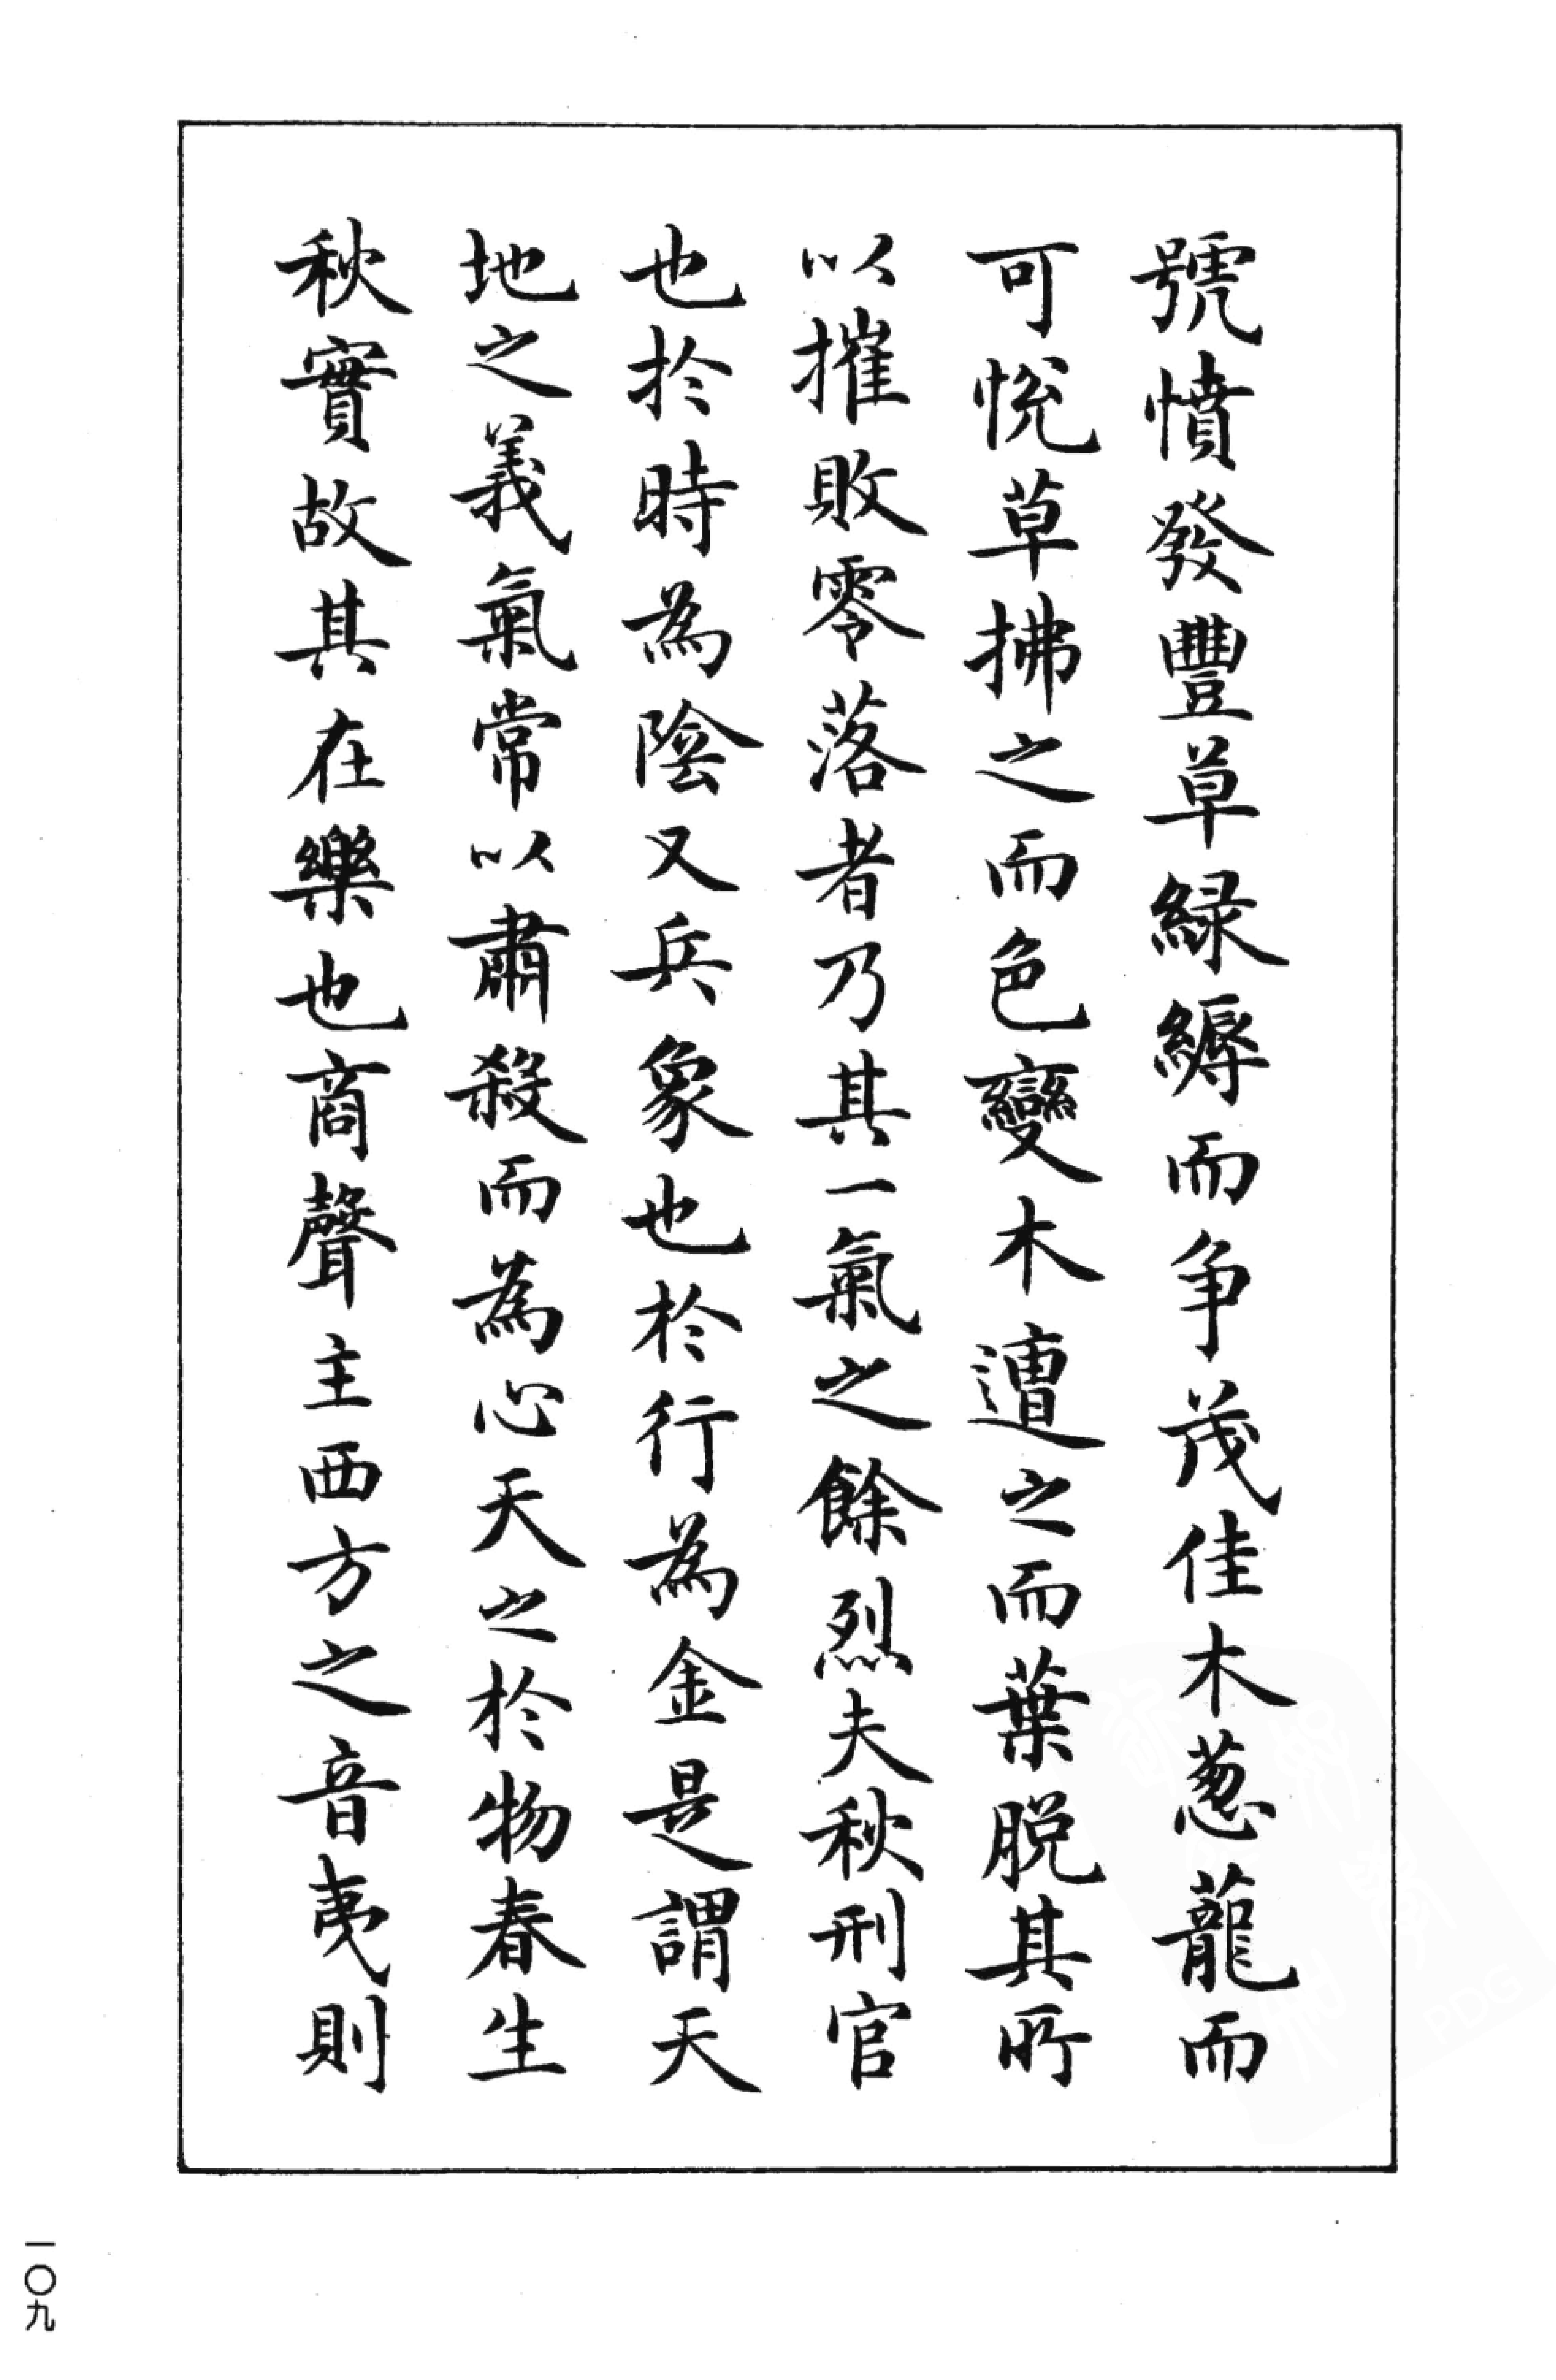 號憤發豐草緑縟而争茂佳木葱蘢而
可悦草拂之而色變木遭之而葉脱其所
以摧敗零落者乃其一氣之餘烈夫秋刑官
也於時為陰又兵象也於行為金是謂天
地之義氣常以肅殺而為心天之於物春生
秋實故其在樂也商聲主西方之音夷則
一〇九